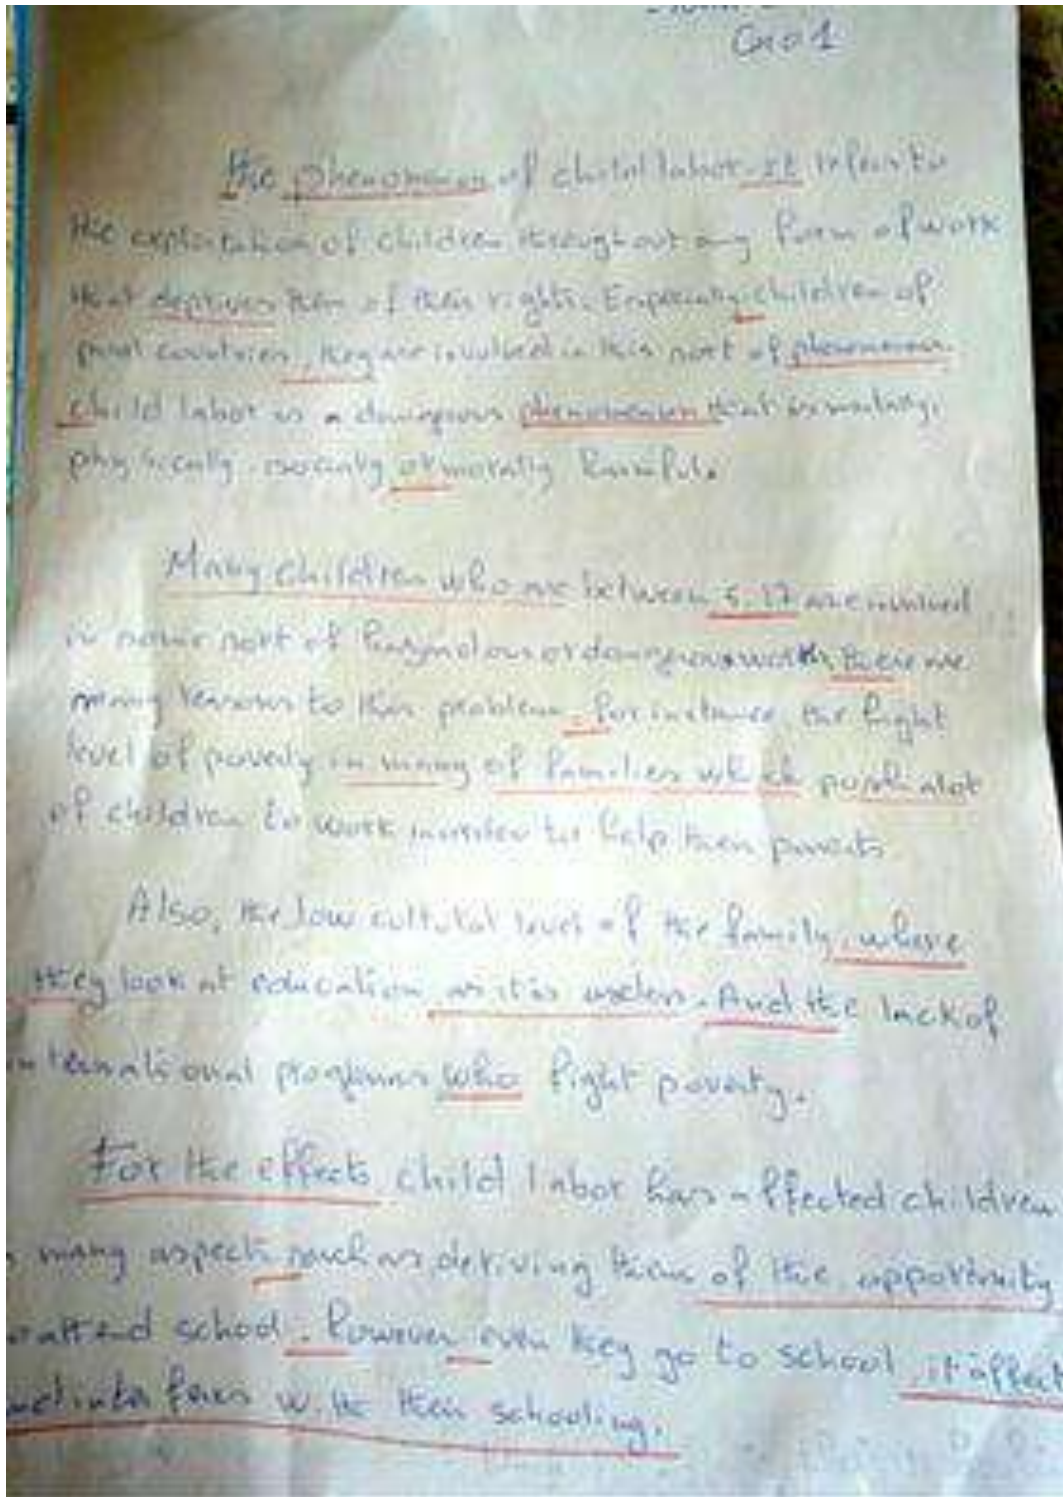 Gro 1
the phenomenon of child labor. It refers to
the exploitation of children throughout any form of work
that deprives them of their rights. Especially children of
countries, they are involved in this sort of phenomenon.
child labor is a dangerous phenomenon that is mentaly,
physically, socialy or morally harmful.
Many children who are between 5.17 are involved
in some sort of or dangerous works, there are
many reasons to this problem. for instance, the hight
level of poverty in many of families which push alot
of children to work inorder to help their parents
Also, the low cultural level of the family, where
they look at education as it is useless. And the lack of
international programs who fight poverty.
For the effects child labor has affected children
many aspects such as, deriving them of the opportunity
attend school. however even they go to school it affect
with their schooling.